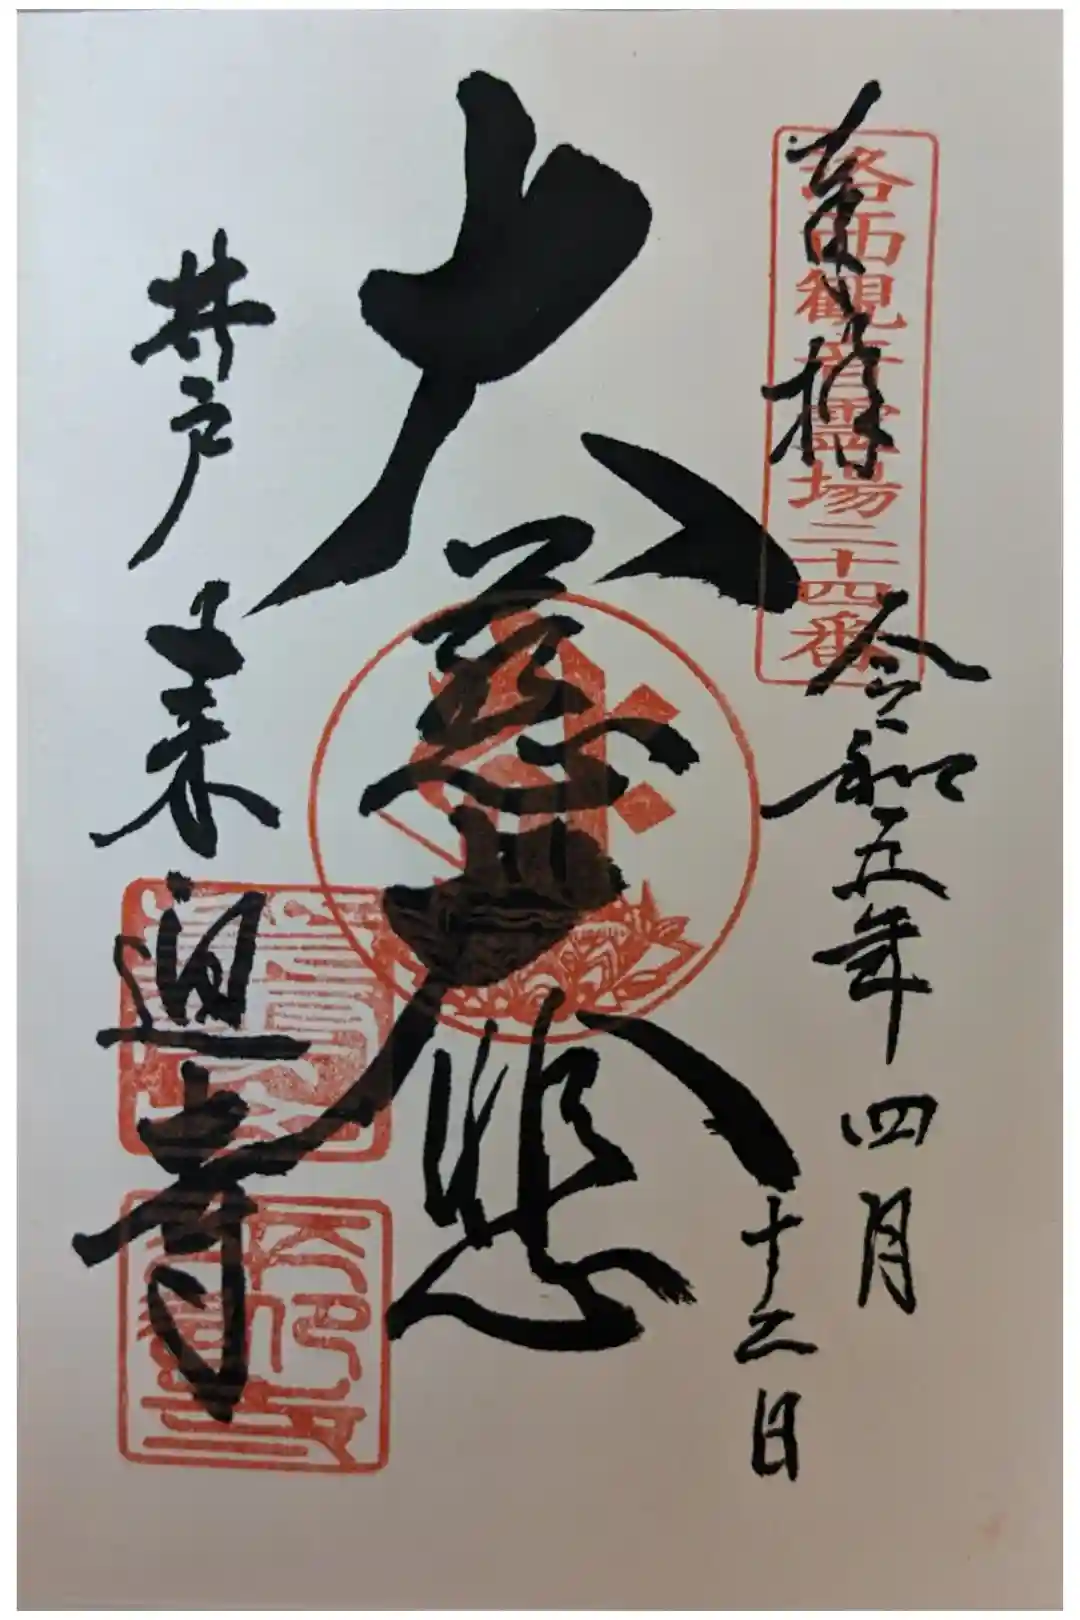 奉拝
洛西観音霊場二十四番
令和五年四月
十二日
大慈大悲
井戸
来迎寺